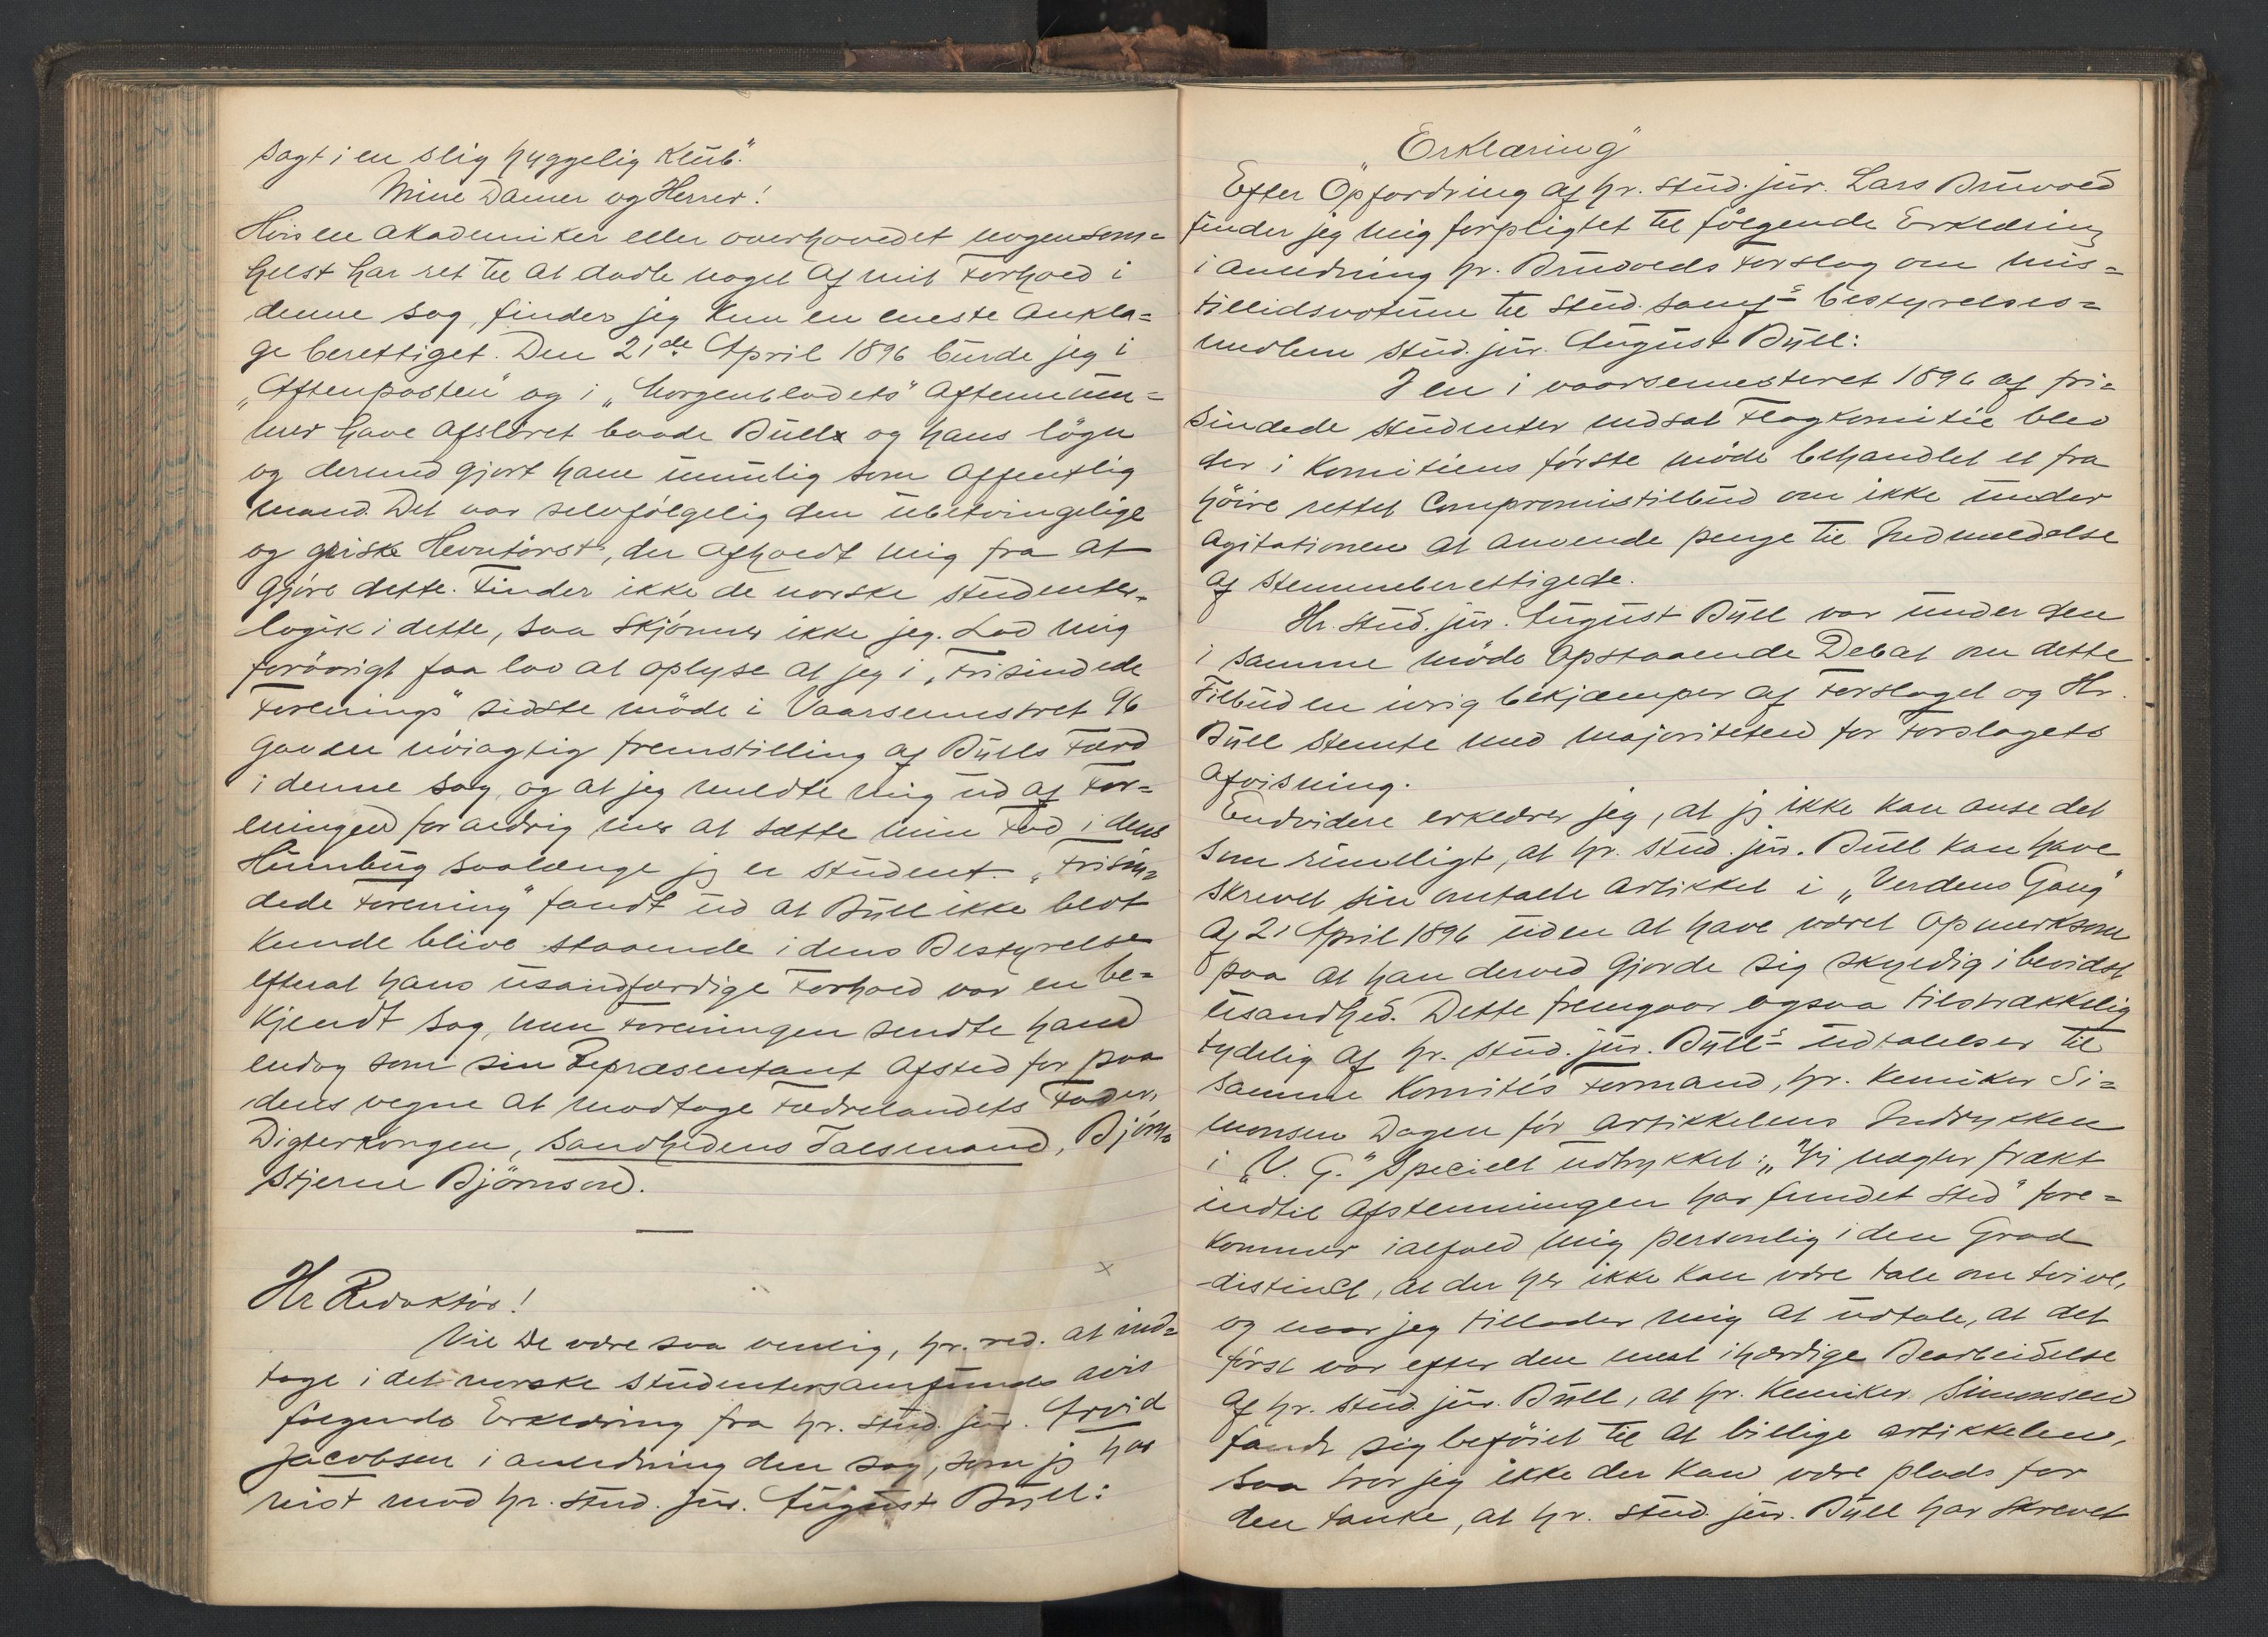 sagt i en slig hyggelig Klub".
Mine Damer og Herrer!
Hvis en akademiker eller overhovedet nogensom=
helst har ret til at dadle noget af mit Forhold i
denne sag, finder jeg kun en eneste Ankla=
ge berettiget. Den 21de April 1896 burde jeg i
"Aftenposten" og i "Morgenbladets" Aftennum=
mer have afsløret baade Bull og hans løgn
og dermed gjort ham umulig som offentlig
mand. Det var selvfølgelig den ubetvingelige
og griske Hevntørst, der afholdt mig fra at
gjøre dette. Finder ikke de norske studenter
logik i dette, saa skjønner ikke jeg. Lad mig
forøvrigt faa lov at oplyse at jeg i "Frisindede
Forenings" sidste møde i Vaarsemestret 96
gav en nøiagtig fremstilling af Bulls Færd
i denne sag, og at jeg meldte mig ud af For=
eningen for aldrig mer at sætte min Fod i dens
Humbug saalænge jeg er student. "Frisin=
dede Forening" fandt ud at Bull ikke blot
kunde blive staaende i dens Bestyrelse
efterat hans usandfærdige Forhold var en be=
kjendt sag, men Foreningen sendte ham
endog som sin Repræsentant afsted for paa
dens vegne at modtage Fædrelandets Fader,
Digterkongen, Sandhedens Talsmand, Bjørn=
stjerne Bjørnson.
Hr Redaktør!
x
Vil De være saa venlig, hr. red. at ind=
tage i det norske studentersamfunds avis
følgende Erklæring fra hr. stud. jur. Arvid
Jacobsen i anledning den sag, som jg har
reist mod hr. stud. jur. August Bull:
"Erklæring"
Efter Opfordring af hr. stud. jur. Lars Bruvold
finder jeg mig forpligtet til følgende Erklæring
i anledning hr. Bruvolds Forslag om mis=
tillidsvotum til stud. samf=s bestyrelses=
medlem stud. jur. August Bull:
I en i vaarsemesteret 1896 af fri=
sindede studenter nedsat Flagkomitie blev
der i Komitiens første møde behandlet et fra
høire rettet Compromistilbud om ikke under
agitationen at anvende penge til Indmeldelse
af stemmeberettigede.
Hr. stud. jur. August Bull var under den
i samme møde opstaaende Debat om dette
Tilbud en ivrig bekjæmper af Forslaget og Hr.
Bull stemte med majoriteten for Forslagets
afvisning.
Endvidere erklærer jeg, at jg ikke kan anse det
som rimeligt, at hr. stud. jur. Bull kan have
skrevet sin omtalte artikkel i "Verdens Gang"
af 21 April 1896 uden at have været opmerksom
paa at han derved gjorde sig skyldig i bevidst
usandhed. Dette fremgaar ogsaa tilstrækkelig
tydelig af hr. stud. jur. Bull=s udtalelser til
samme Komités Formand, hr. kemiker Si=
monsen Dagen før artikkelens Indrykken
i "V. G." Specielt udtrykket: "Vi nægter frækt
indtil Afstemningen har fundet sted" fore=
kommer ialfald mig personlig i den Grad
distinct, at der her ikke kan være tale om tvivl,
og naar jeg tillader mig at udtale, at det
først var efter den mest ihærdige Bearbeidelse
af hr. stud. jur. Bull, at hr. kemiker Simonsen
fandt sig beføiet til at billige artikkelen,
saa tror jeg ikke der kan være plads for
den tanke, at hr. stud. jur. Bull har skrevet